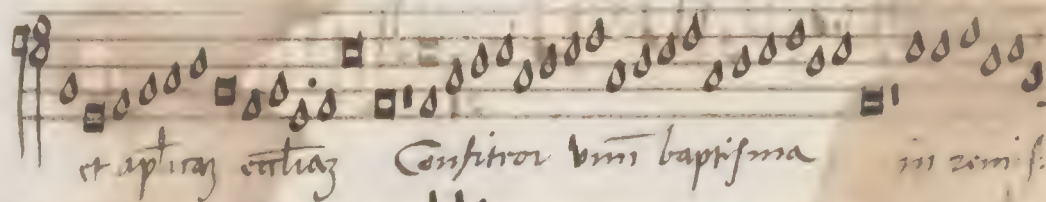 et ap̄licaꝫ eccl̄iaꝫ Confiteor vnū baptisma in remis: